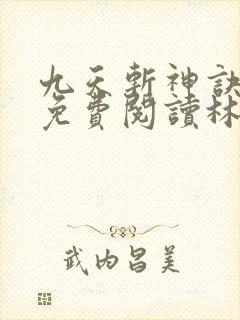 九天斬神訣
免費閱讀林
武内昌美